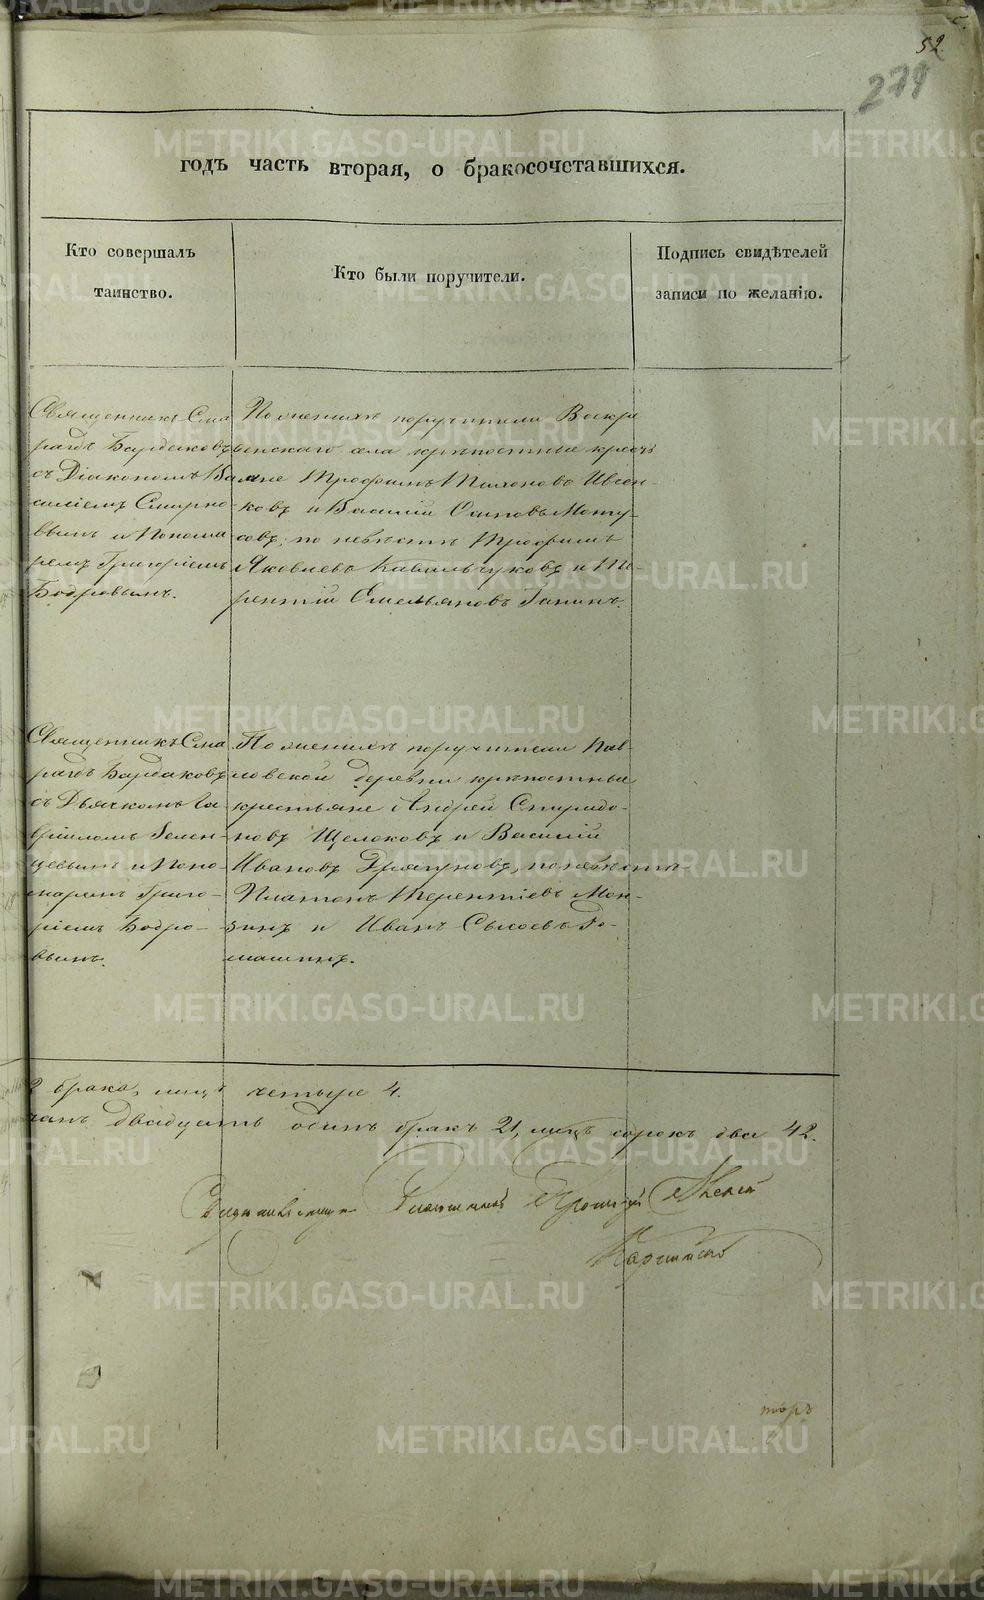 52.
279
годъ часть вторая, о бракосочетавшихся.
Кто совершалъ
таинство.
Кто были поручители.
Подпись свидѣтелей
записи по желанію.
Священникъ Сма
рагдъ Бардаковъ
съ Діакономъ Ва
силіемъ Смирно
вымъ и Понома
ремъ Григоріемъ
Бобровымъ.
По женихѣ поручители Воскре
сенскаго села крѣпостные кресть
яне Трофимъ Пахомовъ Ивсен-
ковъ и Василій Осиповъ Мату-
совъ; по невѣстѣ Трофимъ
Яковлевъ Кавальчуковъ и Те-
рентій Емельяновъ Ганинъ.
Священникъ Сма
рагдъ Бардаковъ
съ Дьячкомъ Га-
вріиломъ Гелен-
цевымъ и Поно-
маремъ Григо-
ріемъ Бобро-
вымъ.
По женихѣ поручители Пав-
ловской деревни крѣпостные
крестьяне Андрей Спиридо-
новъ Щелоковъ и Василій
Ивановъ Драгуновъ, по невѣстѣ
Платонъ Терентіевъ Мон-
зинъ и Иванъ Сысоевъ Го-
машинъ.
2 брака, лицъ четыре 4.
двадцать одинъ бракъ 21, лицъ сорокъ два 42.
торъ
METRIKI.GASO-URAL.RU